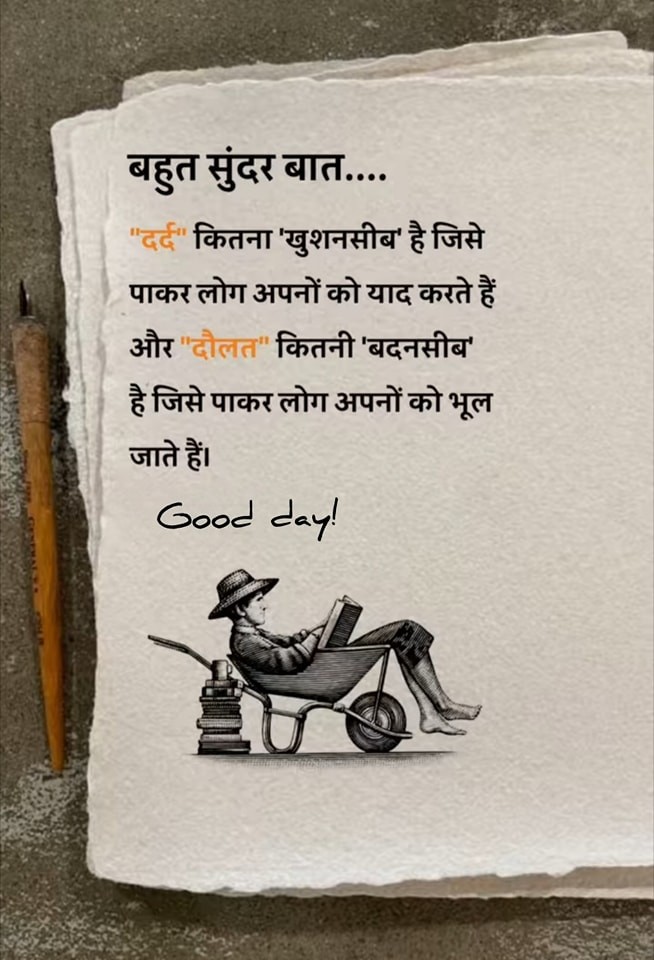 बहुत सुंदर बात....
"दर्द" कितना 'खुशनसीब' है जिसे
पाकर लोग अपनों को याद करते हैं
और "दौलत" कितनी 'बदनसीब'
है जिसे पाकर लोग अपनों को भूल
जाते हैं।
Good day!